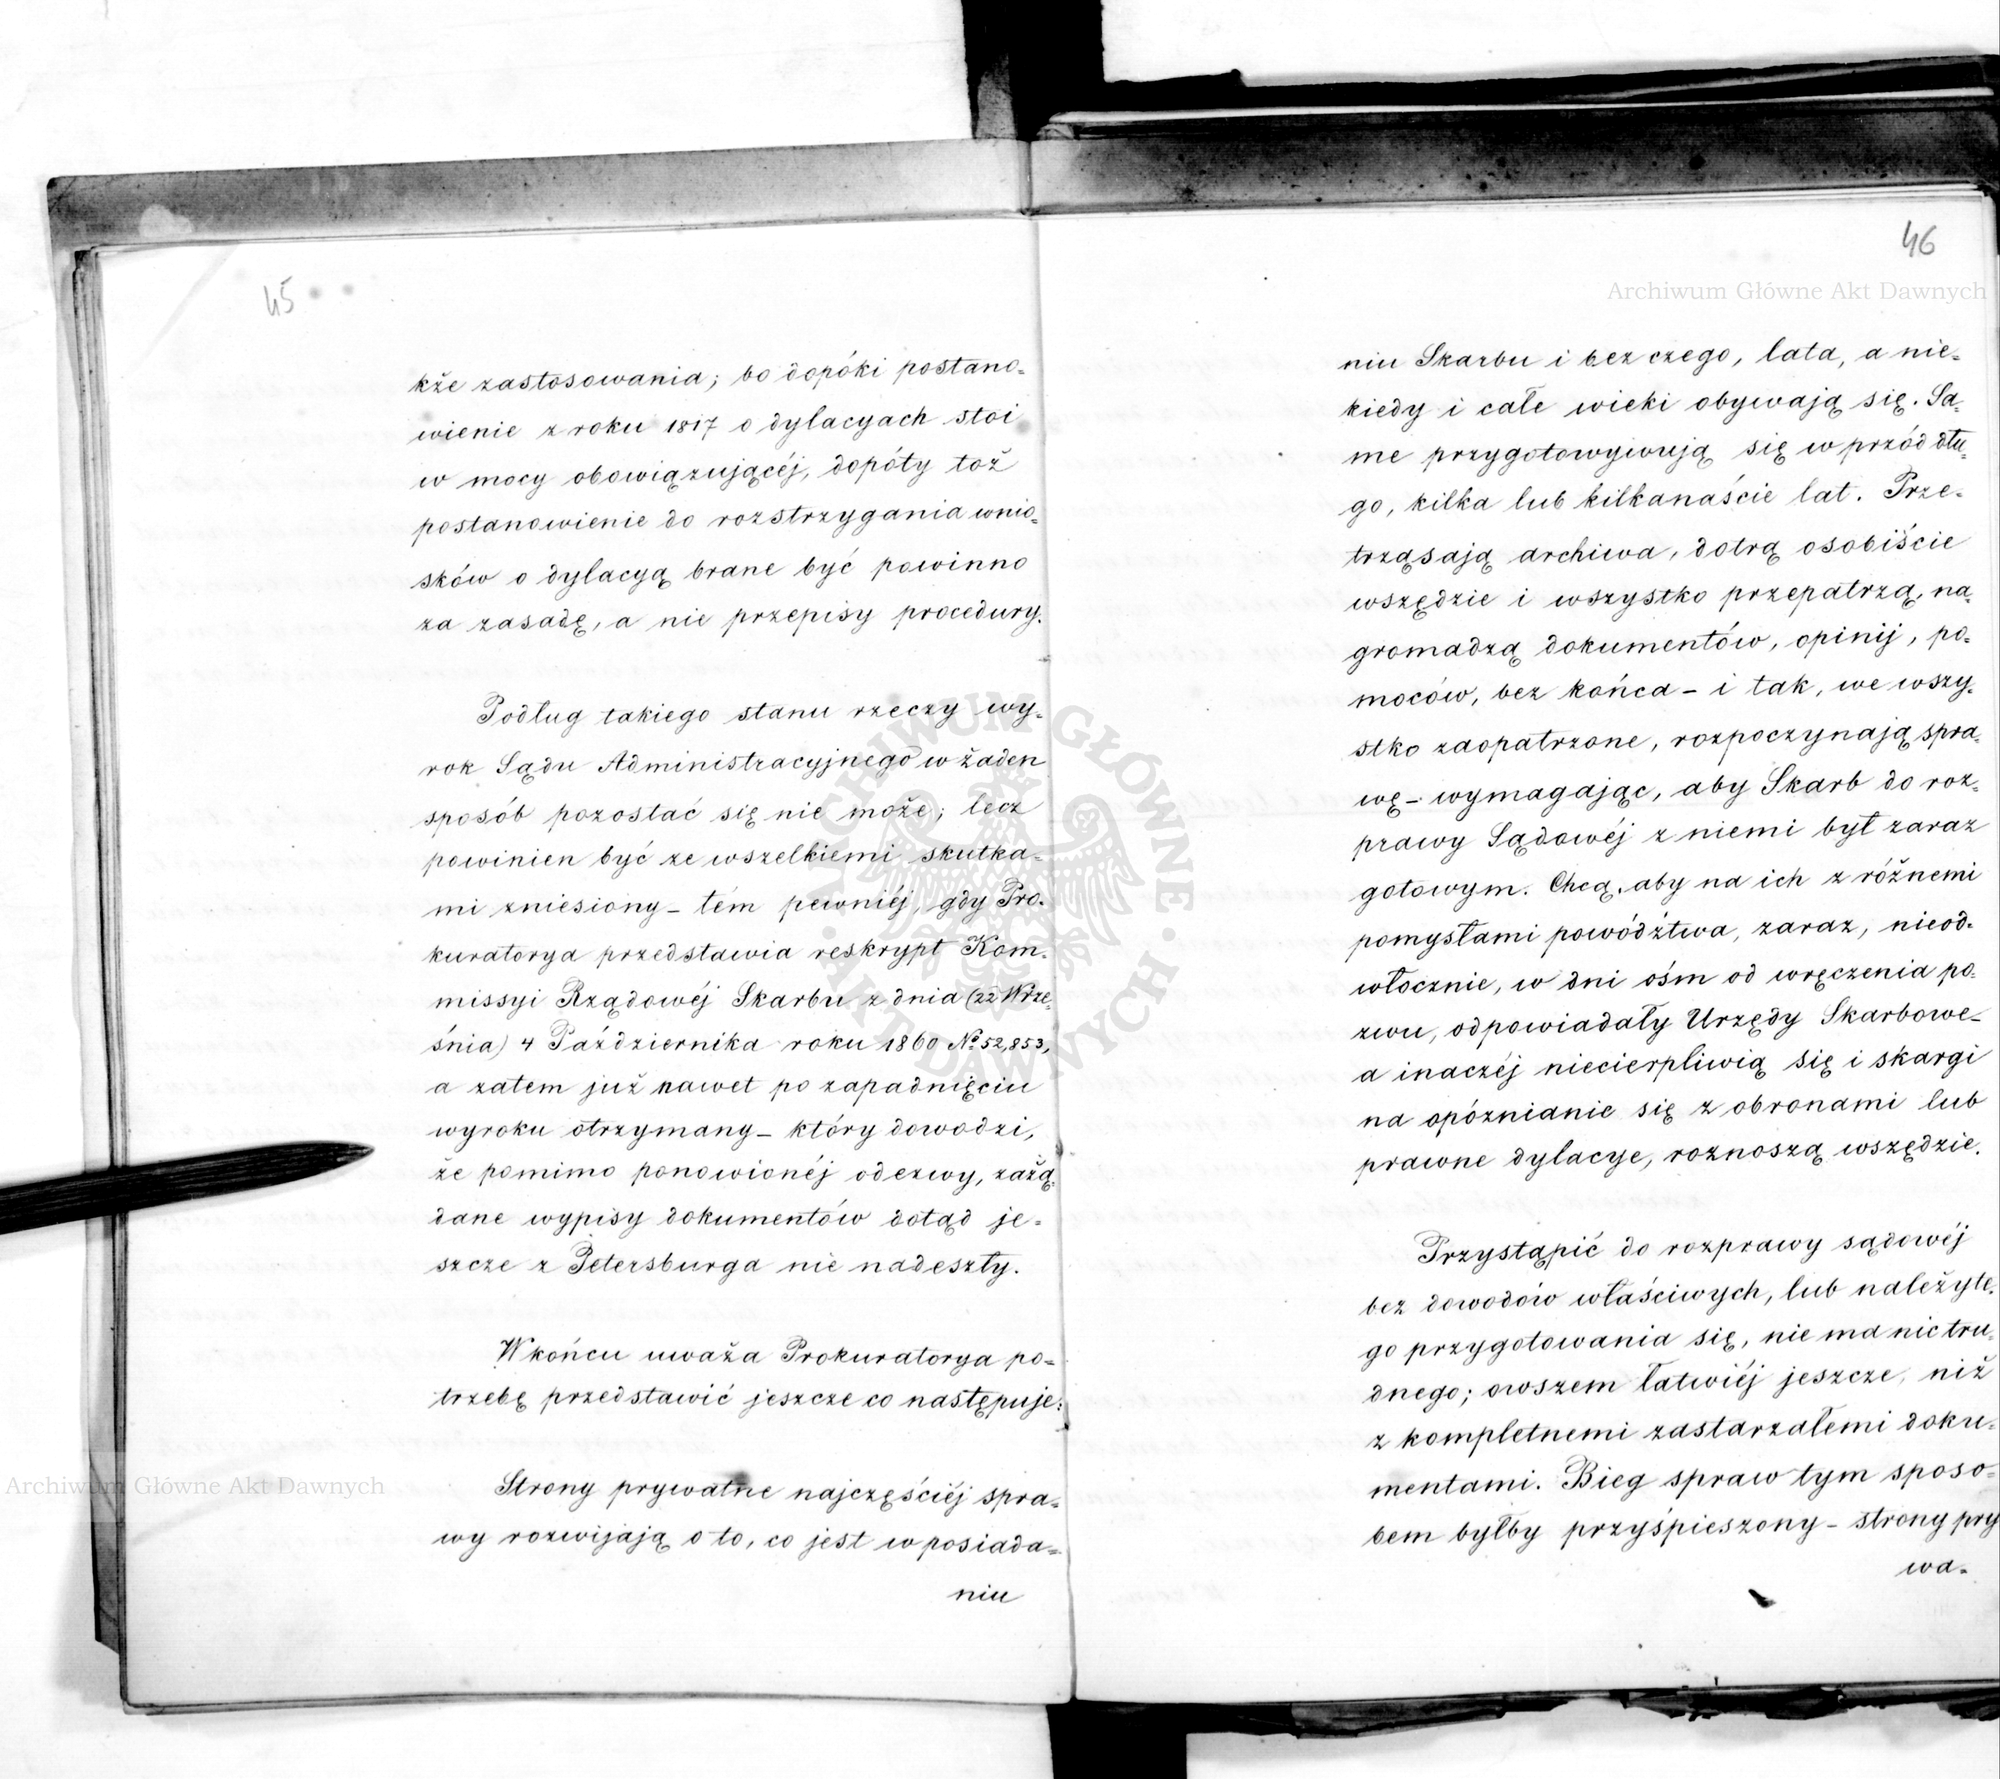 45
kże zastosowania; bo dopóki postano=
wienie z roku 1817 o dylacyach stoi
w mocy obowiązującéj, dopóty toż
postanowienie do rozstrzygania wnio=
sków o dylacyą brane być powinno
za zasadę, a nie przepisy procedury.
Podług takiego stanu rzeczy wy=
rok Sądu Administracyjnego w żaden
sposób pozostać się nie może; lecz
powinien być ze wszelkiemi skutka=
mi zniesiony_ tém pewniéj, gdy Pro=
kuratorya przedstawia reskrypt Kom=
missyi Rządowéj Skarbu z dnia (22 Wrze=
śnia) 4 Października roku 1860 No 52,853,
a zatem już nawet po zapadnięciu
wyroku otrzymany_ który dowodzi,
że pomimo ponowionéj odezwy, zażą=
dane wypisy dokumentów dotąd je=
szcze z Petersburga nie nadeszły.
W końcu uważa Prokuratorya po=
trzebę przedstawić jeszcze co następuje:
Strony prywatne najczęściéj spra=
wy rozwijają o to, co jest w posiada=
niu
46
niu Skarbu i bez czego, lata, a nie=
kiedy i całe wieki obywają się. Sa=
me przygotowywują się wprzód dłu=
go, kilka lub kilkanaście lat. Prze=
trząsają archiwa, dotrą osobiście
wszędzie i wszystko przepatrzą, na=
gromadzą dokumentów, opinij, po=
moców, bez końca – i tak, we wszy=
stko zaopatrzone, rozpoczynają spra=
wę – wymagając, aby Skarb do roz=
prawy Sądowéj z niemi był zaraz
gotowym. Chcą, aby na ich z różnemi
pomysłami powództwa, zaraz, nieod=
włocznie, w dni ośm od wręczenia po=
zwu, odpowiadały Urzędy Skarbowe_
a inaczéj niecierpliwią się i skargi
na opóznianie się z obronami lub
prawne dylacye, roznoszą wszędzie.
Przystąpić do rozprawy sądowéj
bez dowodów właściwych, lub należyte=
go przygotowania się, nie ma nic tru=
dnego; owszem łatwiéj jeszcze, niż
z kompletnemi zastarzałemi doku=
mentami. Bieg spraw tym sposo=
bem byłby przyśpieszony – strony pry
wa=
Archiwum Główne Akt Dawnych
Archiwum Główne Akt Dawnych
ARCHIWUM GŁÓWNE AKT DAWNYCH